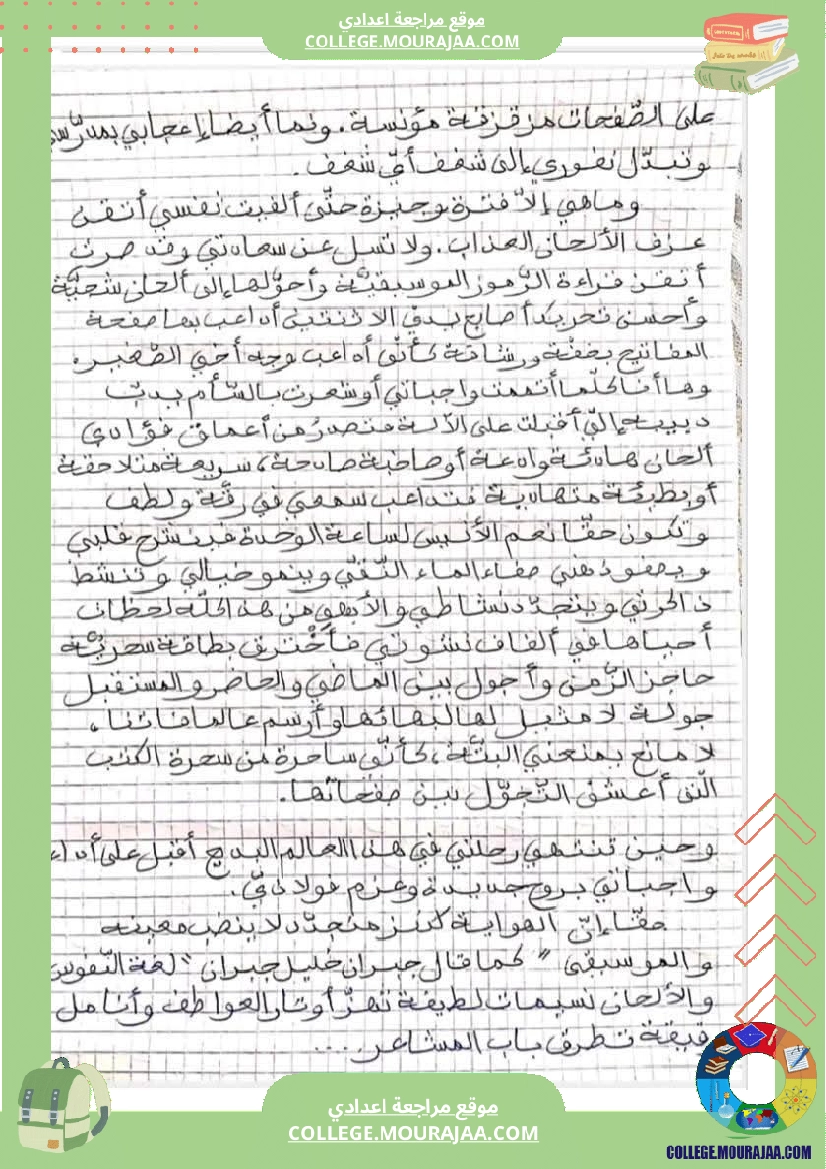 موقع مراجعة اعدادي
COLLEGE.MOURAJAA.COM
على الصّفحات مزقزقة مؤنسة. ونما أيضا إعجابي
وتبدّل نفوري إلى شغف أيّ شغف.
وماهي إلاّ فترة وجيزة حتّى ألفيت نفسي أتقن
عزف الألحان العذاب. ولا تسل عن سعادتي وقد صرت
أتقن قراءة الرّموز الموسيقيّة وأحوّلها إلى ألحان شجيّة
وأحسن تحريك أصابع يديّ الاثنتين أداعب بها صفحة
المفاتيح بخفّة ورشاقة كأنّي أداعب وجه أخي الصّغير.
وها أنا كلّما أتممت واجباتي أو شعرت بالسّأم يدبّ
دبيبه إليّ أقبلت على الآلة فتصدرُ من أعماق فؤادي
ألحان هادئة وادعة أو صاخبة صادحة، سريعة متلاحقة
أو بطيئة متهادية تداعب سمعي في رقّة ولطف
وتكون حقّا نعم الأنيس لساعة الوحدة فينشرح قلبي
ويصفو ذهني صفاء الماء النّقيّ وينمو خيالي وتنشط
ذاكرتي ويتجدّد نشاطي والأبهى من هذا كلّه لحظات
أحياها في ألفاف نشوتي فأخترق بطاقة سحريّة
حاجز الزّمن وأجول بين الماضي والحاضر والمستقبل
جولة لا مثيل لها لبهائها وأرسم عالما فاتنا.
لا مانع يمنعني البتّة، كأنّي ساحرة من سحرة الكتب
الّتي أعشق التّجوّل بين صفحاتها.
وحين تنتهي رحلتي في هذا العالم البديع أقبل على
واجباتي بروح جديدة وعزم فولاذيّ.
حقّا إنّ الهواية كنز متجدّد لا ينضب معينه
والموسيقى " كما قال جبران خليل جبران " لغة النّفوس
والألحان نسيمات لطيفة تهزّ أوتار العواطف وأنامل
تطرق باب المشاعر ....
موقع مراجعة اعدادي
COLLEGE.MOURAJAA.COM
COLLEGE.MOURAJAA.COM